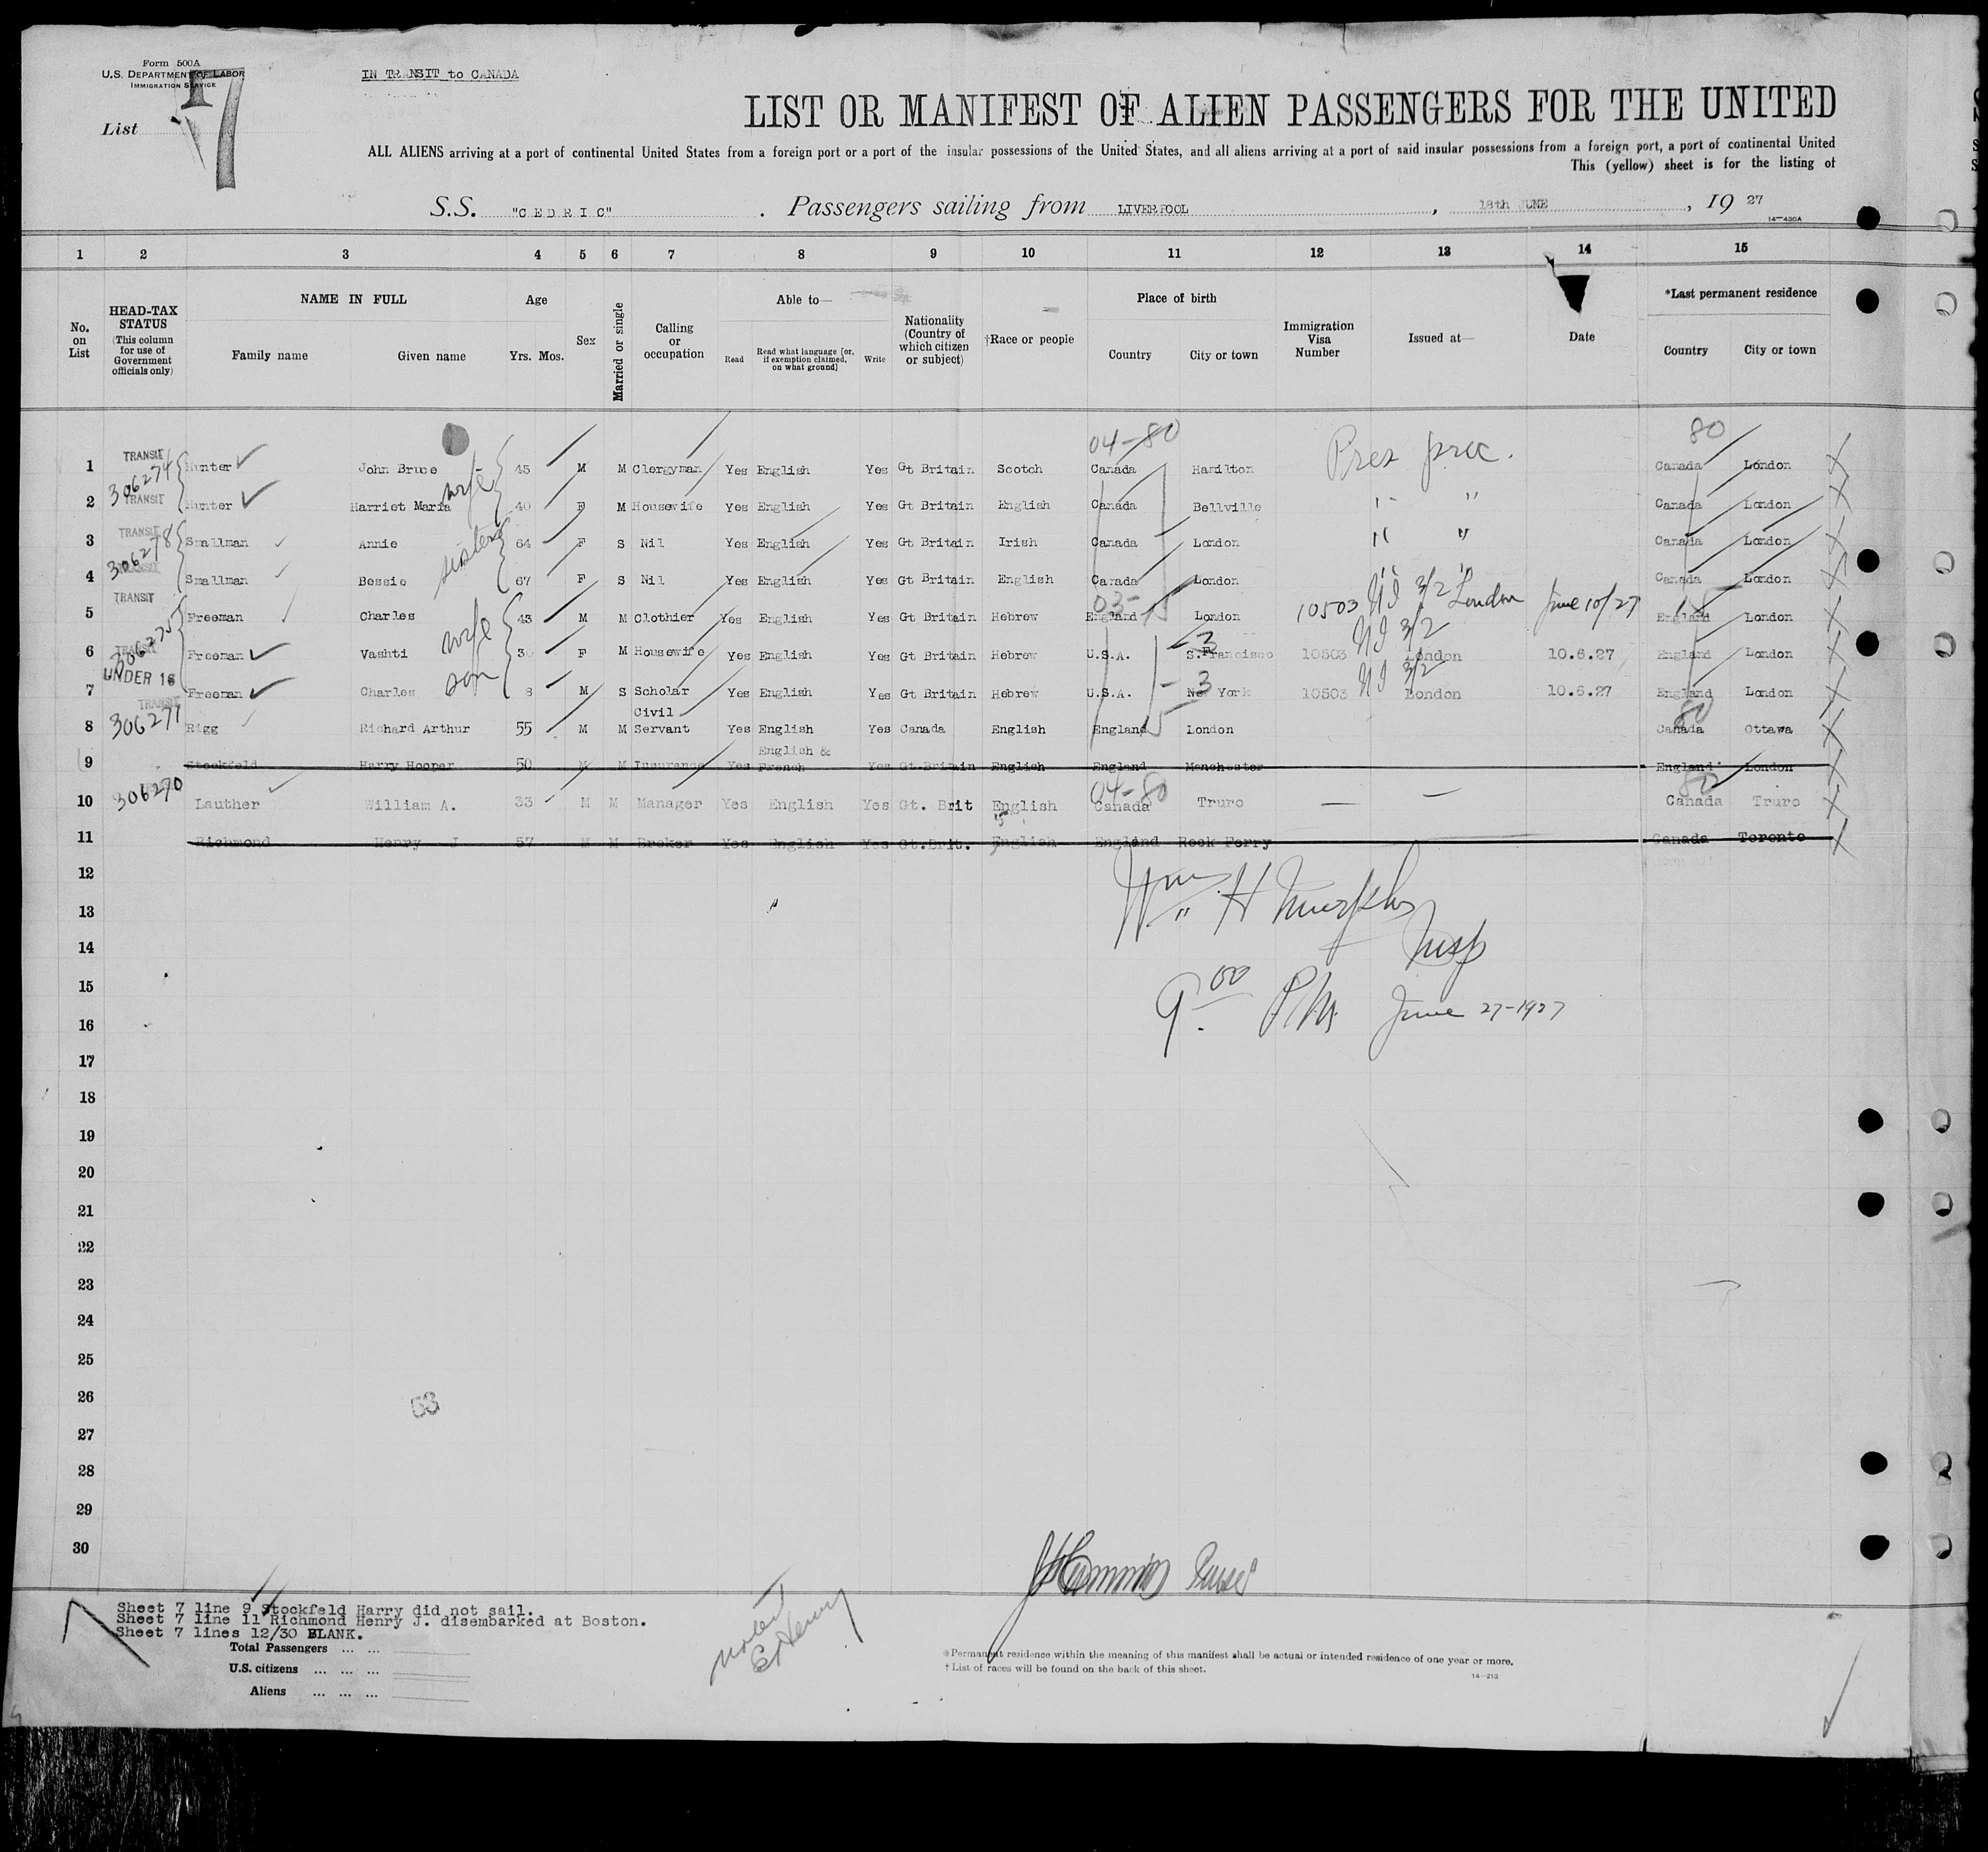 Form 500A
U.S. DEPARTMENT OF LABOR
IMMIGRATION SERVICE
IN TRANSIT to CANADA
List 7
LIST OR MANIFEST OF ALIEN PASSENGERS FOR THE UNITED
ALL ALIENS arriving at a port of continental United States from a foreign port or a port of the insular possessions of the United States, and all aliens arriving at a port of said insular possessions from a foreign port, a port of continental United
This (yellow) sheet is for the listing of
S.S. "CEDRIC" . Passengers sailing from LIVERPOOL , 18th JUNE , 19 27
14-430A
1 2 3 4 5 6 7 8 9 10 11 12 13 14 15
No. on List
HEAD-TAX STATUS (This column for use of Government officials only)
NAME IN FULL
Family name Given name
Age
Yrs. Mos.
Sex
Married or single
Calling or occupation
Able to—
Read Read what language [or, if exemption claimed, on what ground] Write
Nationality (Country of which citizen or subject)
†Race or people
Place of birth
Country City or town
Immigration Visa Number
Issued at—
Date
*Last permanent residence
Country City or town
04-80 80
1 TRANSIT 306274 Hunter John Bruce 45 M M Clergyman Yes English Yes Gt Britain Scotch Canada Hamilton Pres prec. Canada London
2 TRANSIT Hunter Harriet Maria wife 40 F M Housewife Yes English Yes Gt Britain English Canada Bellville " " Canada London
3 TRANSIT 306278 Smallman Annie sisters 64 F S Nil Yes English Yes Gt Britain Irish Canada London " " Canada London
4 Smallman Bessie 67 F S Nil Yes English Yes Gt Britain English Canada London " " Canada London
03-
5 TRANSIT 306275 Freeman Charles 43 M M Clothier Yes English Yes Gt Britain Hebrew England London 10503 NI 3/2 London June 10/27 England London
6 TRANSIT Freeman Vashti wife 30 F M Housewife Yes English Yes Gt Britain Hebrew U.S.A. S.Francisco 3 10503 NI 3/2 London 10.6.27 England London
7 UNDER 16 Freeman Charles son 8 M S Scholar Yes English Yes Gt Britain Hebrew U.S.A. New York 3 10503 NI 3/2 London 10.6.27 England London
80
8 TRANSIT 306271 Rigg Richard Arthur 55 M M Civil Servant Yes English Yes Canada English England London Canada Ottawa
9 Stockfeld Harry Hooper 50 M M Insurance Yes English & French Yes Gt.Britain English England Manchester England London
04-80 80
10 306270 Lauther William A. 33 M M Manager Yes English Yes Gt. Brit English Canada Truro — — Canada Truro
11 Richmond Henry J 57 M M Broker Yes English Yes Gt.Brit. English England Rock Ferry Canada Toronto
12
Wm H Murphy
13
Insp
14
15
9.00 PM June 27-1927
16
17
18
19
20
21
22
23
24
25
26
53
27
28
29
30
Purser
Sheet 7 line 9 Stockfeld Harry did not sail.
Sheet 7 line 11 Richmond Henry J. disembarked at Boston.
Sheet 7 lines 12/30 BLANK.
Total Passengers ... ...
U.S. citizens ... ... ...
Aliens ... ... ...
*Permanent residence within the meaning of this manifest shall be actual or intended residence of one year or more.
† List of races will be found on the back of this sheet.
14-213